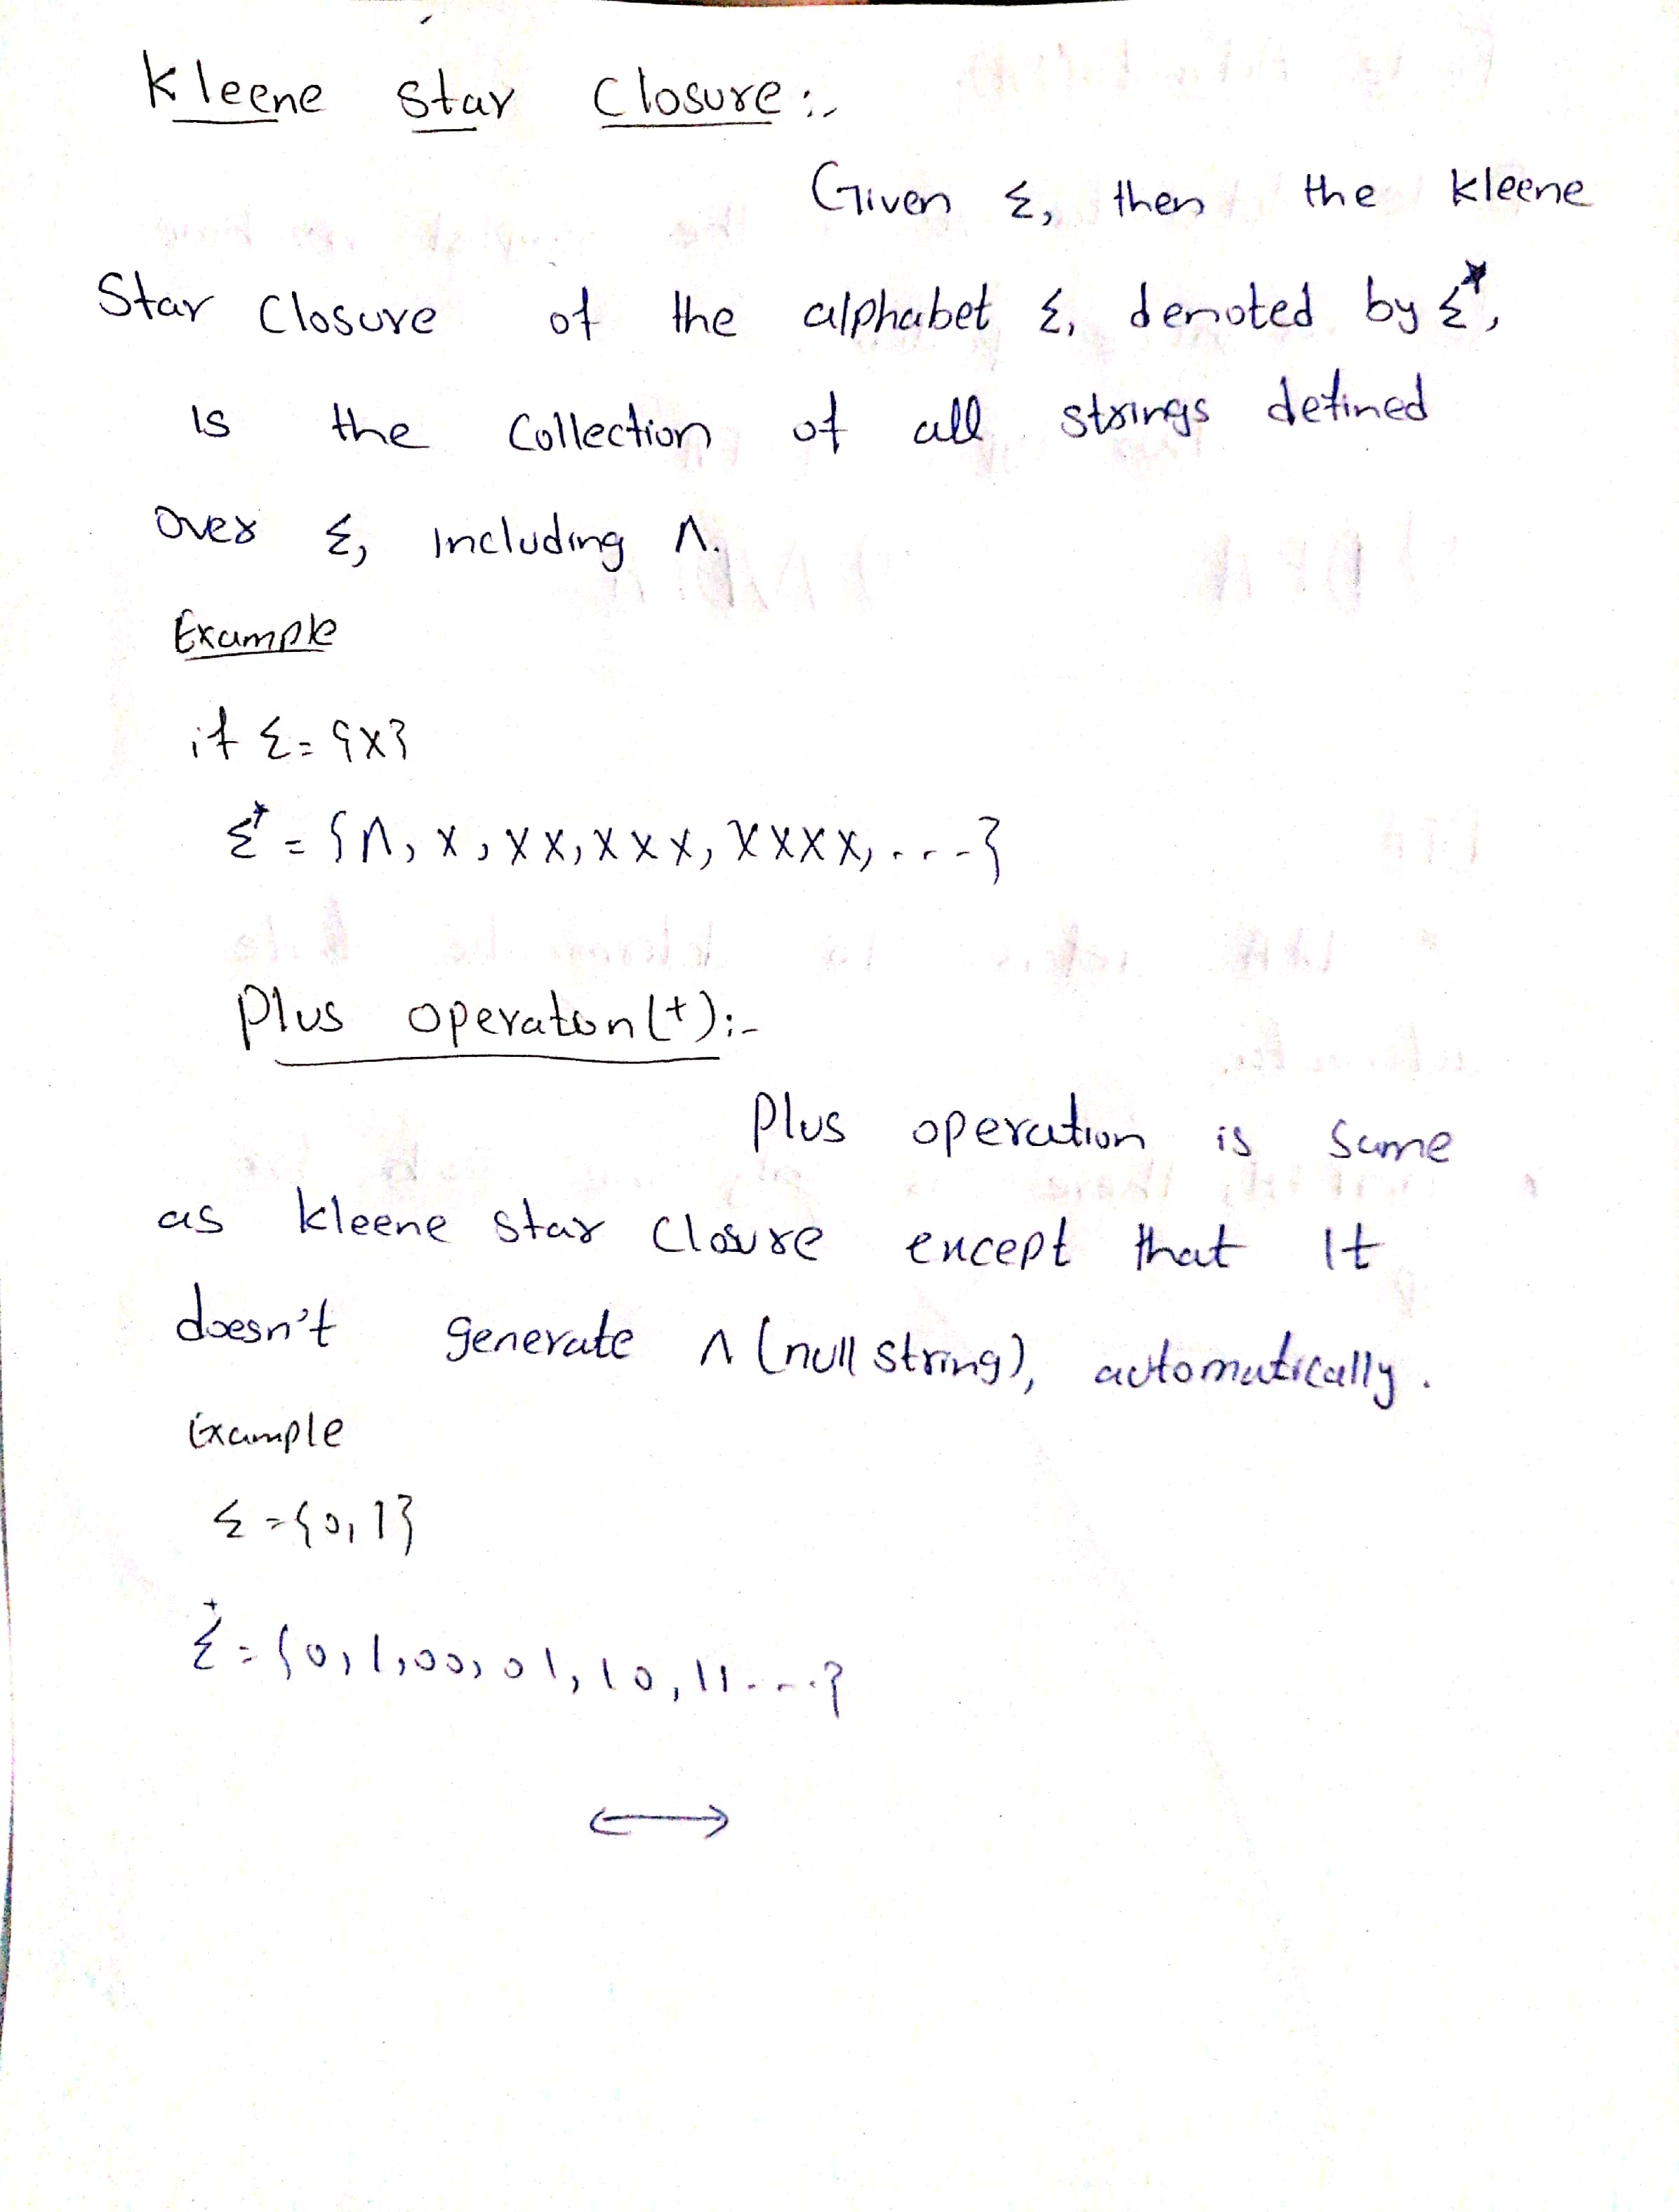 Kleene Star Closure:-
Given Σ, then the Kleene
Star Closure of the alphabet Σ, denoted by Σ*,
is the Collection of all strings defined
over Σ, including Λ.
Example
if Σ = {x}
Σ* = {Λ, x, xx, xxx, xxxx, ....}
Plus operaton (+):-
Plus operation is same
as kleene star closure except that It
doesn't generate Λ (null string), automatically.
Example
Σ = {0, 1}
Σ⁺ = {0, 1, 00, 01, 10, 11 ....}